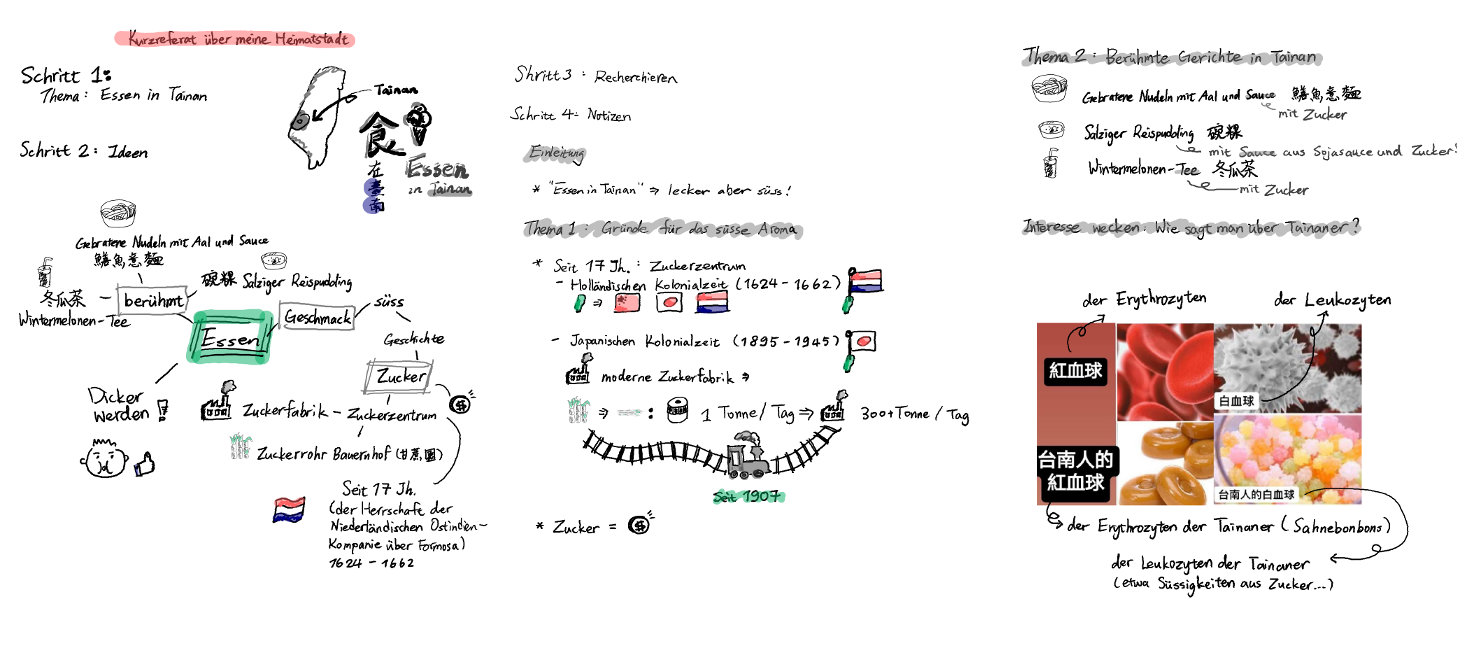 Kurzreferat über meine Heimatstadt
Schritt 1:
Thema: Essen in Tainan
Tainan
食
在
臺
南
Essen
in Tainan
Schritt 2: Ideen
Gebratene Nudeln mit Aal und Sauce
鱔魚意麵
碗粿 Salziger Reispudding
冬瓜茶
Wintermelonen-Tee
berühmt
Essen
Geschmack
süss
Geschichte
Zucker
Dicker
werden!
Zuckerfabrik - Zuckerzentrum
$
Zuckerrohr Bauernhof (甘蔗園)
Seit 17 Jh.
(der Herrschaft der
Niederländischen Ostindien-
Kompanie über Formosa)
1624 - 1662
Shritt 3: Recherchieren
Schritt 4: Notizen
Einleitung
* "Essen in Tainan" ⇒ lecker aber süss!
Thema 1: Gründe für das süsse Aroma
* Seit 17 Jh.: Zuckerzentrum
- Holländischen Kolonialzeit (1624 - 1662)
⇒
- Japanischen Kolonialzeit (1895 - 1945)
moderne Zuckerfabrik ⇒
⇒ : 1 Tonne/Tag ⇒ 300+Tonne/Tag
Seit 1907
* Zucker = $
Thema 2: Berühmte Gerichte in Tainan
Gebratene Nudeln mit Aal und Sauce 鱔魚意麵
mit Zucker
Salziger Reispudding 碗粿
mit Sauce aus Sojasauce und Zucker!
Wintermelonen-Tee 冬瓜茶
mit Zucker
Interesse wecken: Wie sagt man über Tainaner?
der Erythrozyten
der Leukozyten
紅血球
白血球
台南人的
紅血球
台南人的白血球
der Erythrozyten der Tainaner (Sahnebonbons)
der Leukozyten der Tainaner
(etwa Süssigkeiten aus Zucker...)